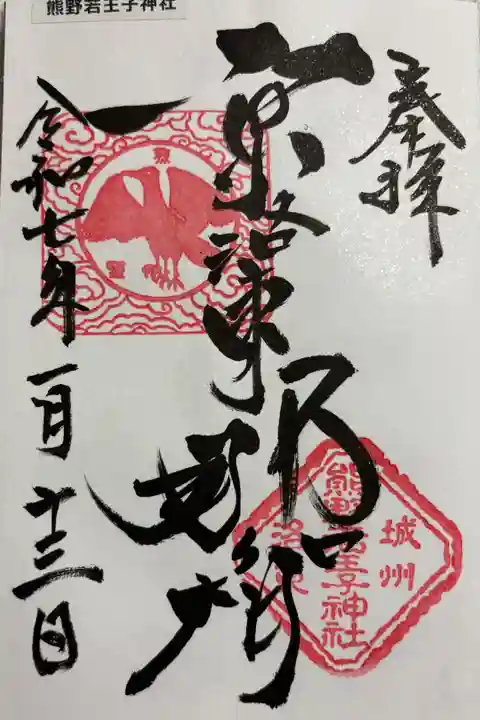 熊野若王子神社
奉拝
京洛東
那智
令和七年
一月十三日
城州
熊野若王子神社
洛東